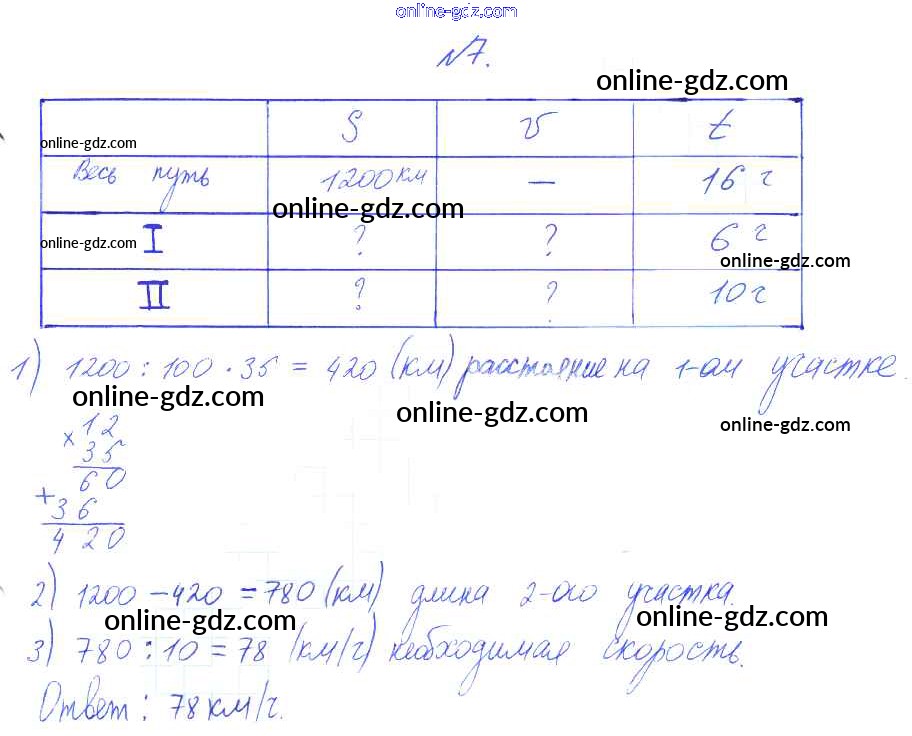 online-gdz.com
№7.
online-gdz.com
S V t
online-gdz.com
Весь путь 1200 км — 16 ч
online-gdz.com
online-gdz.com I ? ? 6 ч
online-gdz.com
II ? ? 10 ч
1) 1200 : 100 · 35 = 420 (км) расстояние на 1-ом участке.
online-gdz.com online-gdz.com online-gdz.com
× 12
35
60
+ 36
420
2) 1200 - 420 = 780 (км) длина 2-ого участка.
online-gdz.com online-gdz.com
3) 780 : 10 = 78 (км/ч) необходимая скорость.
Ответ: 78 км/ч.